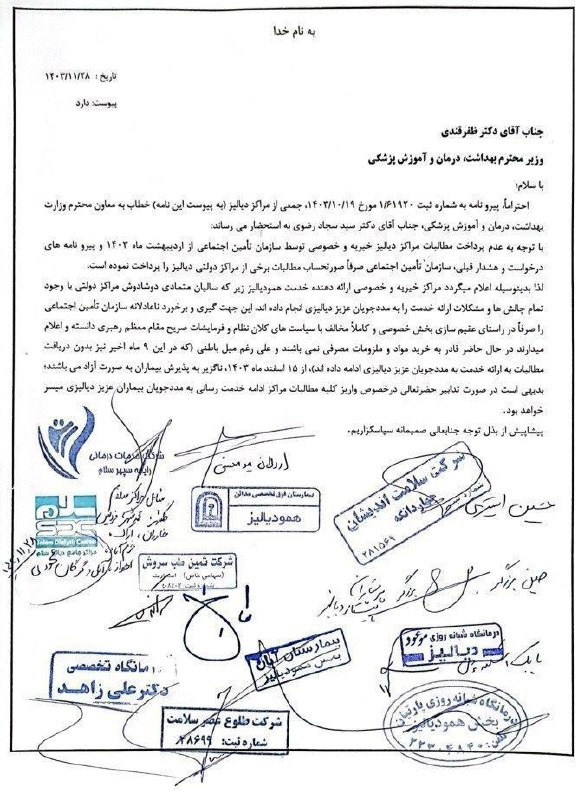 به نام خدا
تاریخ : ۱۴۰۳/۱۱/۲۸
پیوست: دارد
جناب آقای دکتر ظفرقندی
وزیر محترم بهداشت، درمان و آموزش پزشکی
با سلام؛
احتراماً، پیرو نامه به شماره ثبت ۱/۶۱۹۲۰ مورخ ۱۴۰۳/۱۰/۱۹، جمعی از مراکز دیالیز (به پیوست این نامه) خطاب به معاون محترم وزارت
بهداشت، درمان و آموزش پزشکی، جناب آقای دکتر سید سجاد رضوی به استحضار می رساند:
با توجه به عدم پرداخت مطالبات مراکز دیالیز خیریه و خصوصی توسط سازمان تأمین اجتماعی از اردیبهشت ماه ۱۴۰۳ و پیرو نامه های
درخواست و هشدار قبلی، سازمان تأمین اجتماعی صرفاً صورتحساب مطالبات برخی از مراکز دولتی دیالیز را پرداخت نموده است.
لذا بدینوسیله اعلام میگردد مراکز خیریه و خصوصی ارائه دهنده خدمت همودیالیز زیر که سالیان متمادی دوشادوش مراکز دولتی با وجود
تمام چالش ها و مشکلات ارائه خدمت را به مددجویان عزیز دیالیزی انجام داده اند، این جهت گیری و برخورد ناعادلانه سازمان تأمین اجتماعی
را صرفاً در راستای عقیم سازی بخش خصوصی و کاملاً مخالف با سیاست های کلان نظام و فرمایشات صریح مقام معظم رهبری دانسته و اعلام
میدارند در حال حاضر قادر به خرید مواد و ملزومات مصرفی نمی باشند و علی رغم میل باطنی (که در این ۹ ماه اخیر نیز بدون دریافت
مطالبات به ارائه خدمت به مددجویان عزیز دیالیزی ادامه داده اند)، از ۱۵ اسفند ماه ۱۴۰۳، ناگزیر به پذیرش بیماران به صورت آزاد می باشند؛
بدیهی است در صورت تدابیر حضرتعالی درخصوص واریز کلیه مطالبات مراکز ادامه خدمت رسانی به مددجویان بیماران عزیز دیالیزی میسر
خواهد بود.
پیشاپیش از بذل توجه جنابعالی صمیمانه سپاسگزاریم.
شرکت خدمات درمانی
رایحه سپهر سلام
سلام
Salam Dialysis Center
مراکز جامع دیالیز سلام
بیمارستان فوق تخصصی مدائن
همودیالیز
شرکت سلامت اندیشان
چهاردانگه
شماره ثبت
۲۸۱۵۶۹
شرکت ثمین طب سروش
(سهامی خاص)
درمانگاه شبانه روزی موعود
دیالیز
بیمارستان آبان
بخش همودیالیز
درمانگاه تخصصی
دکتر علی زاهد
شرکت طلوع عصر سلامت
شماره ثبت: ۲۸۶۹۹
درمانگاه شبانه روزی پارسیان
بخش همودیالیز